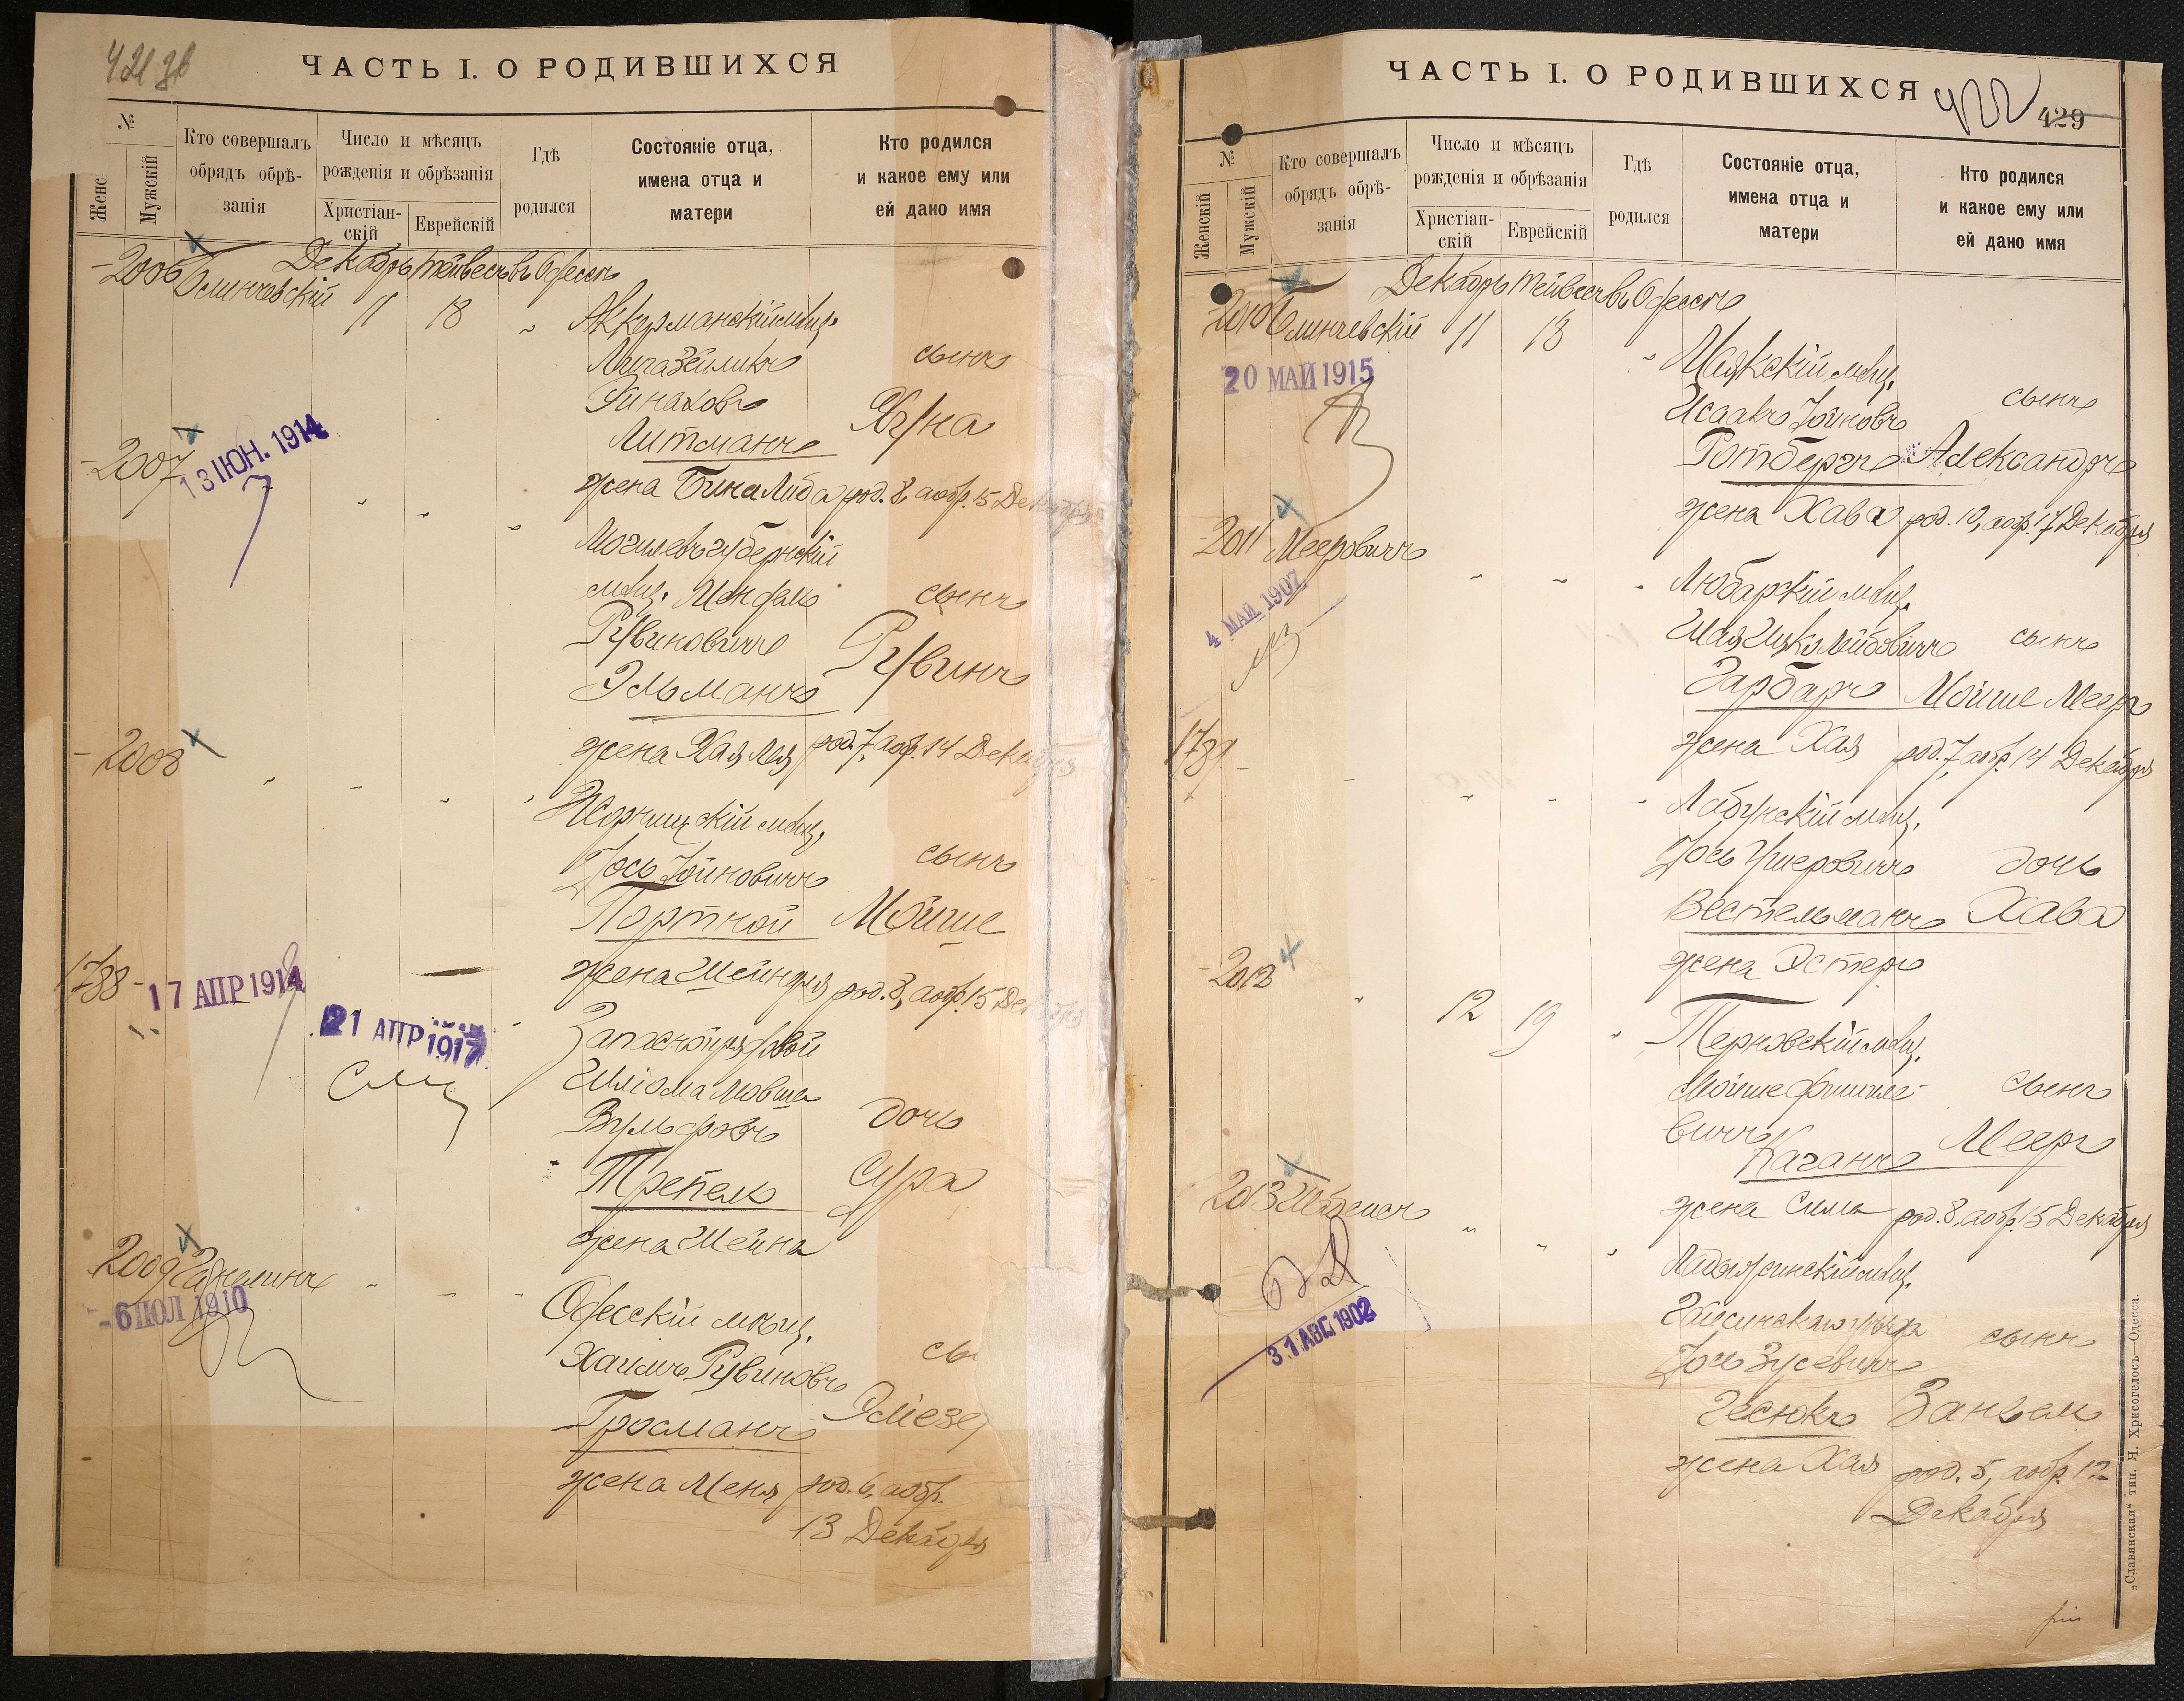 ЧАСТЬ I. О РОДИВШИХСЯ
№
Женс
Мужскій
Кто совершалъ
обрядъ обрѣ-
занія
Число и мѣсяцъ
рожденія и обрѣзанія
Христіан-
скій
Еврейскій
Гдѣ
родился
Состояніе отца,
имена отца и
матери
Кто родился
и какое ему или
ей дано имя
2006
Декабрь Тейвесъ въ Одессѣ
11 18 Аккерманскій мѣщ.
сынъ
Литманъ
жена Бина Либа род. 8, а обр. 15 Декабря
2007
13 ІЮН. 1914
Могилевъ губернскій
мѣщ. сынъ
Рувиновичъ Рувинъ
Эльманъ
жена Хая Лея род. 7, а обр. 14 Дек
2008
мѣщ.
Іось Іойновичъ сынъ
Портной Мойше
жена Шейндля род. 8, а обр. 15 Де
1788
17 АПР 1914
21 АПР 1917
Запасной рядовой
Шліома
дочь
Трепель Сура
жена Шейна
2009
6 ІЮЛ 1910
Одесскій мѣщ.
Хаимъ Рувиновъ сы
Гросманъ Эліезе
жена Меня род. 6, а обр.
13 Декабря
ЧАСТЬ I. О РОДИВШИХСЯ
422
429
№
Женскій
Мужскій
Кто совершалъ
обрядъ обрѣ-
занія
Число и мѣсяцъ
рожденія и обрѣзанія
Христіан-
скій
Еврейскій
Гдѣ
родился
Состояніе отца,
имена отца и
матери
Кто родился
и какое ему или
ей дано имя
2010
Декабрь Тейвесъ въ Одессѣ
11 18 Маякскій мѣщ.
20 МАЙ 1915
Исаакъ Іойновъ сынъ
Ротбергъ Александръ
жена Хава род. 10, а обр. 17 Декабря
2011 Мееровичъ
4 МАЙ 1907
Любарскій мѣщ.
Шая Ицко Лейбовичъ сынъ
Гарбаръ Мойше Мееръ
жена Хая род. 7, а обр. 14 Декабря
1789
Лабунскій мѣщ.
Іось Ушеровичъ дочь
Вестельманъ Хава
жена Эстеръ
2012
12 19 Терновскій мѣщ.
Мойше Фишиле- сынъ
вичъ
Каганъ Мееръ
жена Сима род. 8, а обр. 15 Декабря
2013
31 АВГ 1902
Ладыжинскій мѣщ.
Гайсинскаго уѣзда сынъ
Іось Зусевичъ
Гесюкъ Занвель
жена Хая род. 5, а обр. 12
Декабря
„Славянская“ тип. Н. Хрисогелосъ—Одесса.